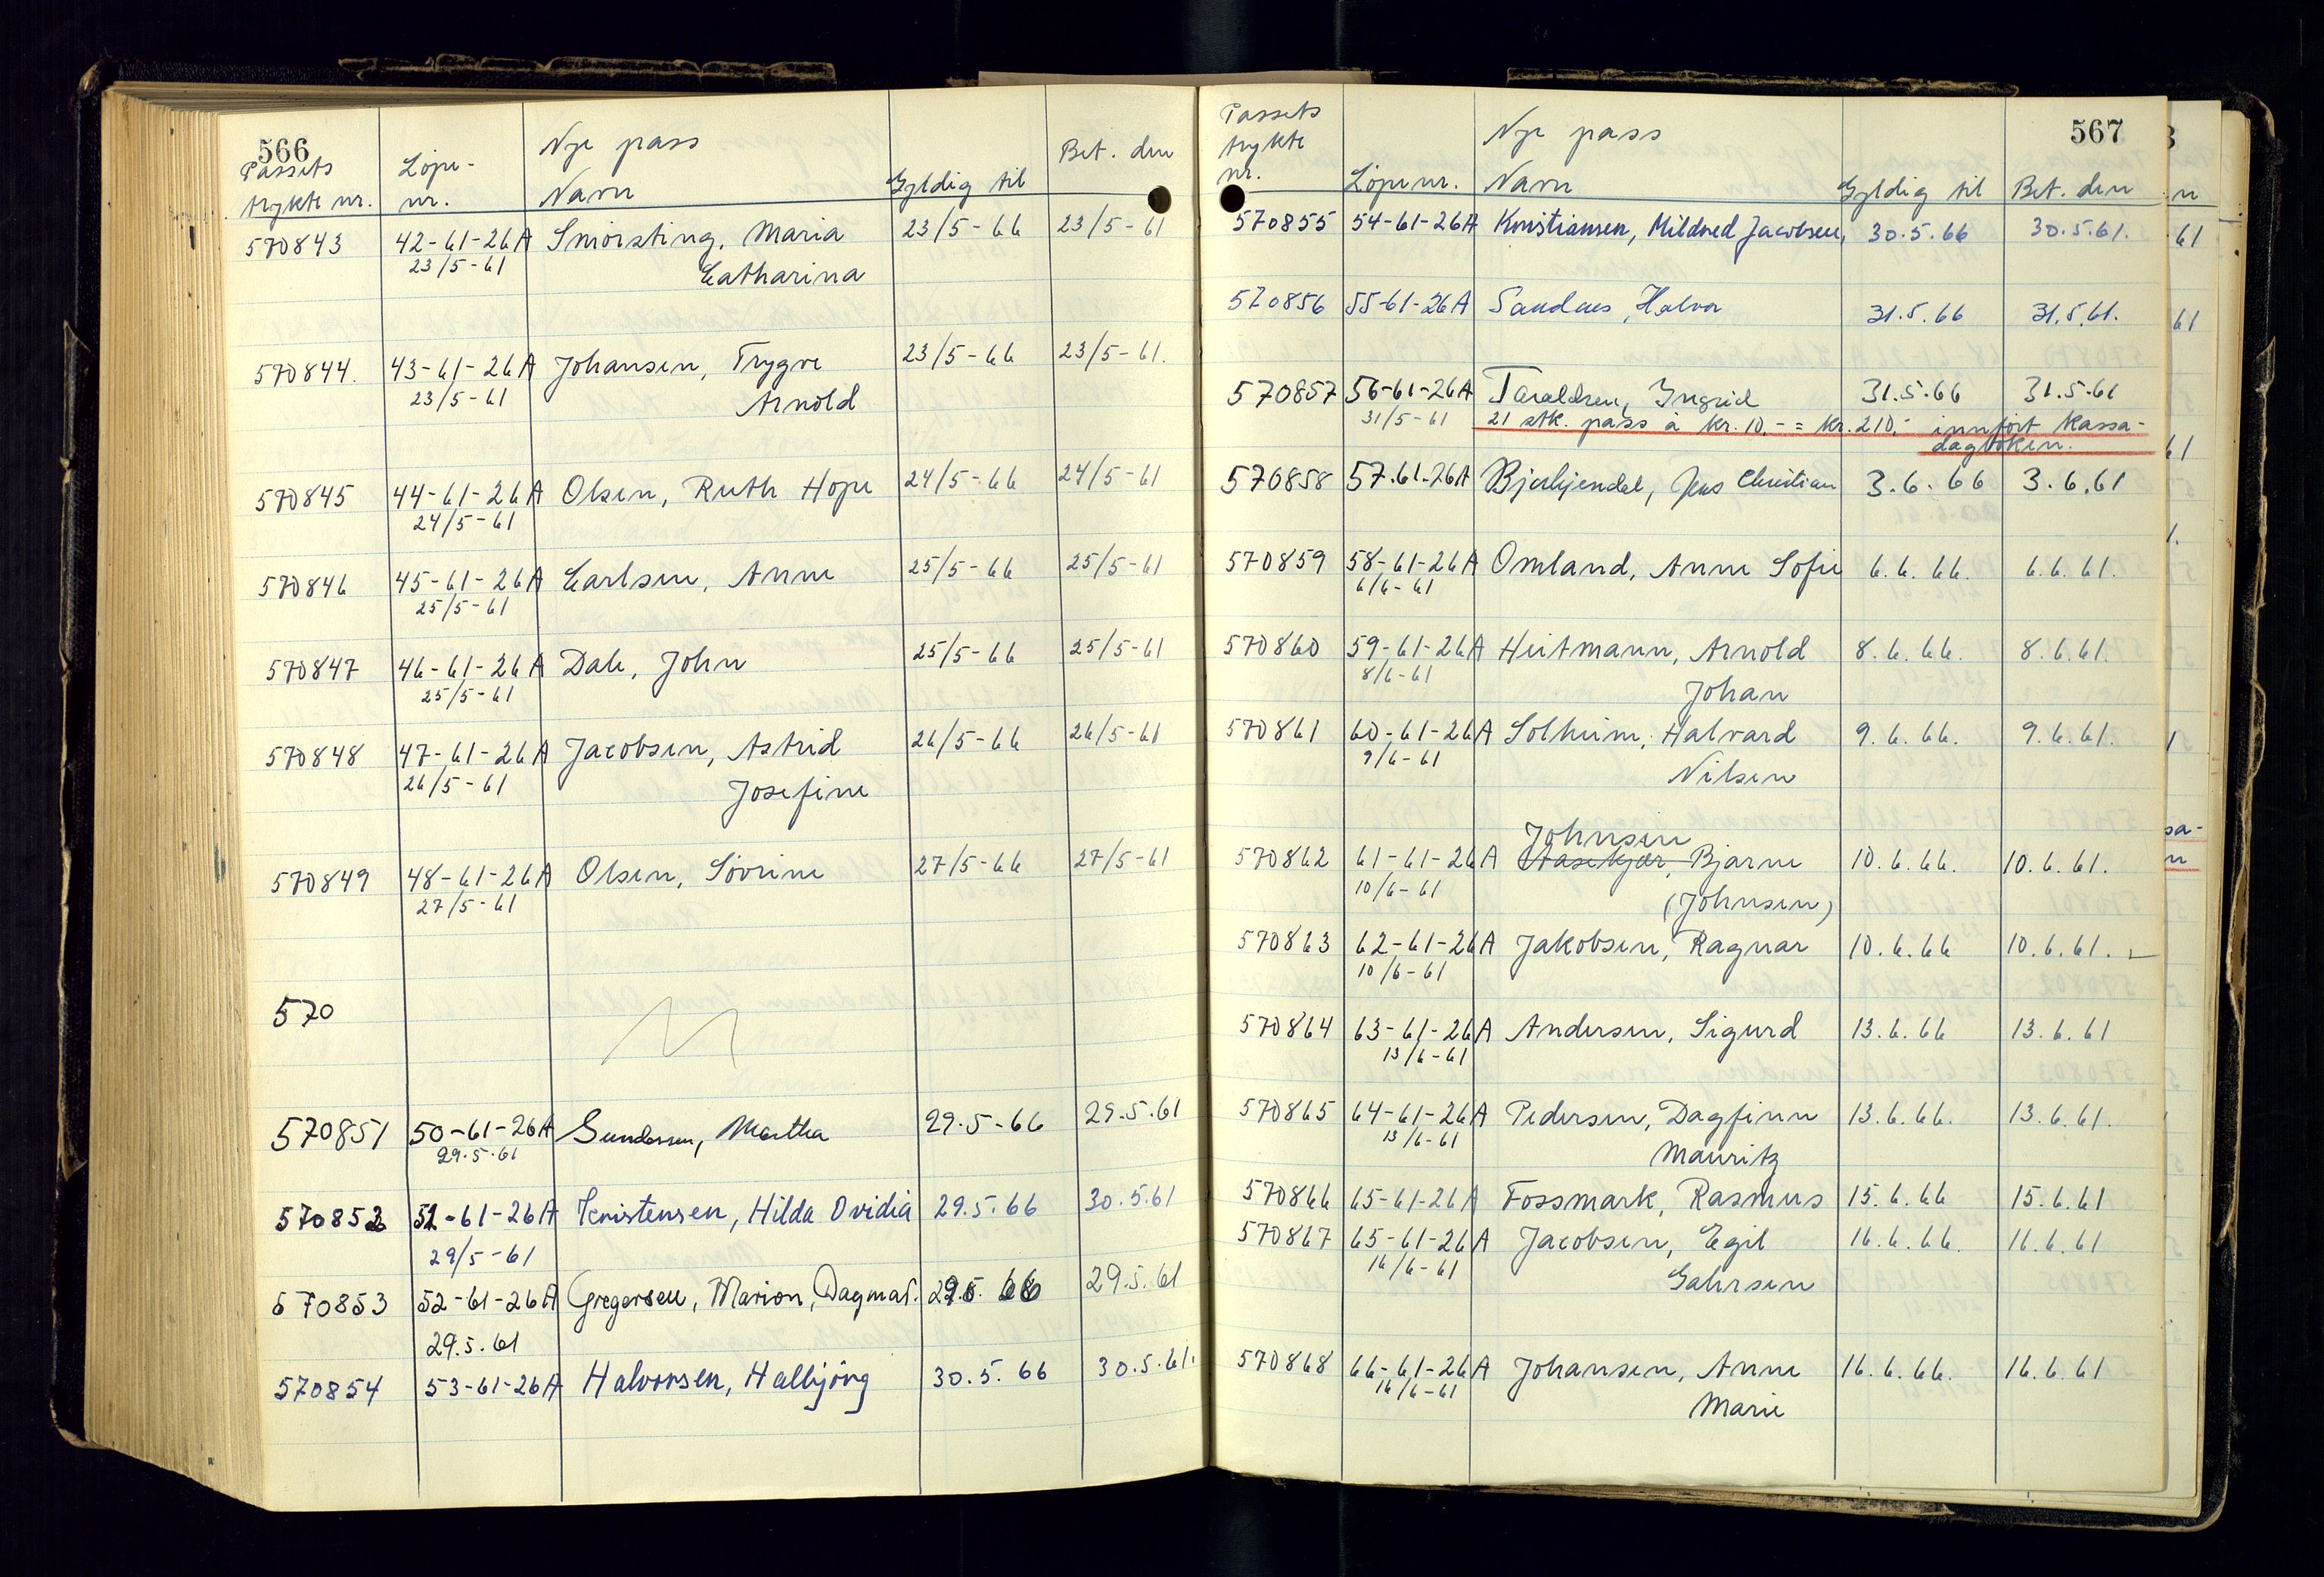 566
Nye pass
Passets trykte nr. Løpe-nr. Navn Gyldig til Bet. den
570843 42-61-26A Smørsting, Maria 23/5-66 23/5-61
23/5-61 Catharina
570844. 43-61-26A Johansen, Trygve 23/5-66 23/5-61.
23/5-61 Arnold
570845 44-61-26A Olsen, Ruth Hope 24/5-66 24/5-61
24/5-61
570846 45-61-26A Carlsen, Anne 25/5-66 25/5-61
25/5-61
570847 46-61-26A Dale, John 25/5-66 25/5-61
25/5-61
570848 47-61-26A Jacobsen, Astrid 26/5-66 26/5-61
26/5-61 Josefine
570849 48-61-26A Olsen, Sövrine 27/5-66 27/5-61
27/5-61
570
570851 50-61-26A Gundersen, Martha 29.5-66 29.5.61
29.5.61
570852 51-61-26A Kristensen, Hilda Ovidia 29.5.66 30.5.61
29/5-61
570853 52-61-26A Gregersen, Marion, Dagmar. 29.5.66 29.5.61
29.5.61
570854 53-61-26A Halvorsen, Halbjörg 30.5.66 30.5.61.
567
Nye pass
Passets trykte nr. Löpenr. Navn Gyldig til Bet. den
570855 54-61-26A Kristiansen, Mildred Jacobsen, 30.5.66 30.5.61.
570856 55-61-26A Sandnes, Halva 31.5.66 31.5.61.
570857 56-61-26A Taraldsen, Ingrid 31.5.66 31.5.61
31/5-61 21 stk. pass à kr. 10.- = kr. 210.- innfört kassa-
dagboken.
570858 57.61-26A Christian 3.6.66 3.6.61
570859 58-61-26A Omland, Anne Sofie 6.6.66. 6.6.61.
6/6-61
570860 59-61-26A Heitmann, Arnold 8.6.66. 8.6.61.
8/6-61 Johan
570861 60-61-26A Solheim, Halvard 9.6.66. 9.6.61.
9/6-61 Nilsen
Johnsen
570862 61-61-26A Aasekjær, Bjarne 10.6.66. 10.6.61.
10/6-61 (Johnsen)
570863 62-61-26A Jakobsen, Ragnar 10.6.66 10.6.61.
10/6-61
570864 63-61-26A Andersen, Sigurd 13.6.66 13.6.61
13/6-61
570865 64-61-26A Pedersen, Dagfinn 13.6.66. 13.6.61.
13/6-61 Mauritz
570866 65-61-26A Fossmark, Rasmus 15.6.66 15.6.61
570867 65-61-26A Jacobsen, Egil 16.6.66. 16.6.61
16/6-61 Gahrsen
570868 66-61-26A Johansen, Anne 16.6.66. 16.6.61
16/6-61 Marie